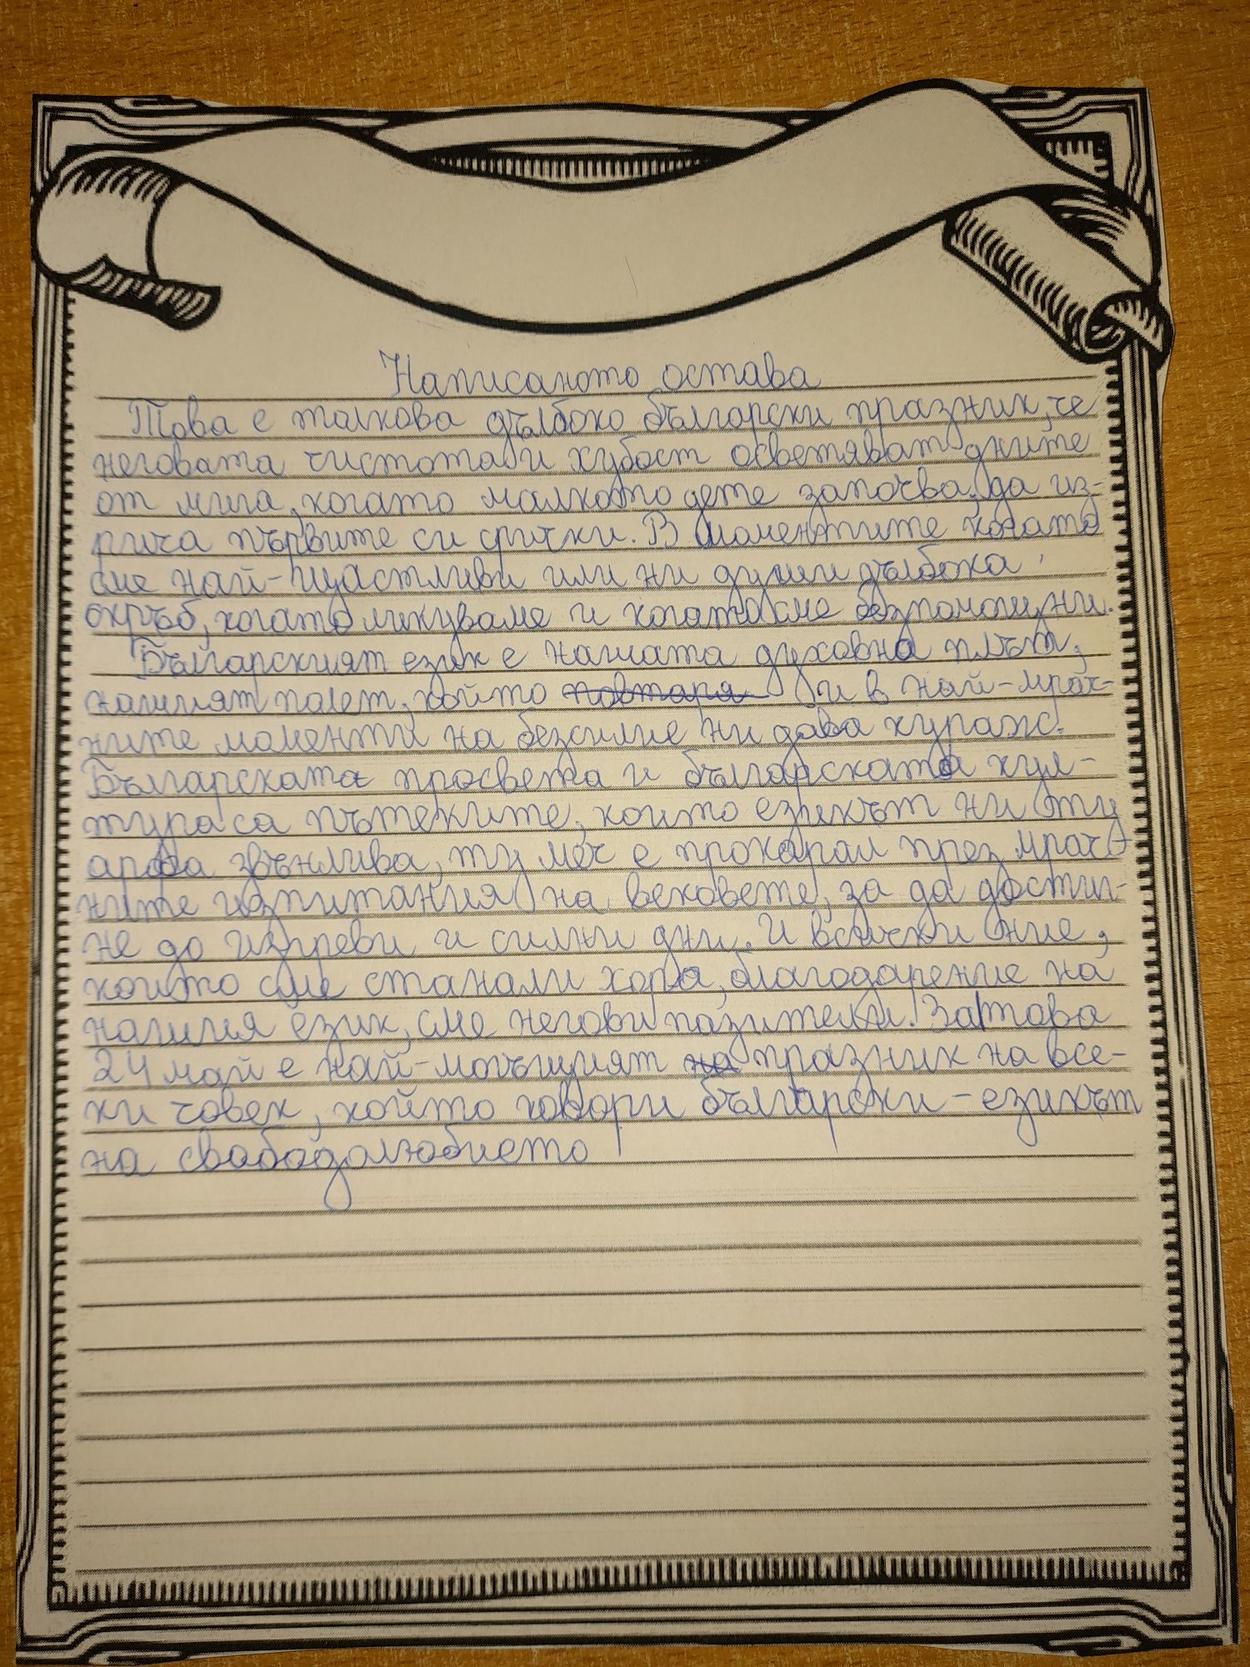 Написаното остава
Това е толкова дълбоко български празник, че
неговата чистота и хубост осветяват дните
от мига, когато малкото дете започва да из-
рича първите си срички. В моментите когато
сме най-щастливи или ни души дълбока
скръб, когато ликуваме и когато сме безпомощни.
Българският език е нашата духовна плът,
нашият полет, който повтаря и в най-мрач-
ните моменти на безсилие ни дава кураж.
Българската просвета и българската кул-
тура са пътеките, които езикът ни ту
арфа звънлива, ту меч е прокарал през мрач-
ните изпитания на вековете, за да достиг-
не до изгреви и силни дни. И всички ние,
които сме станали хора, благодарение на
нашия език, сме негови пазители. Затова
24 май е най-могъщият на празник на все-
ки човек, който говори български - езикът
на свободолюбието